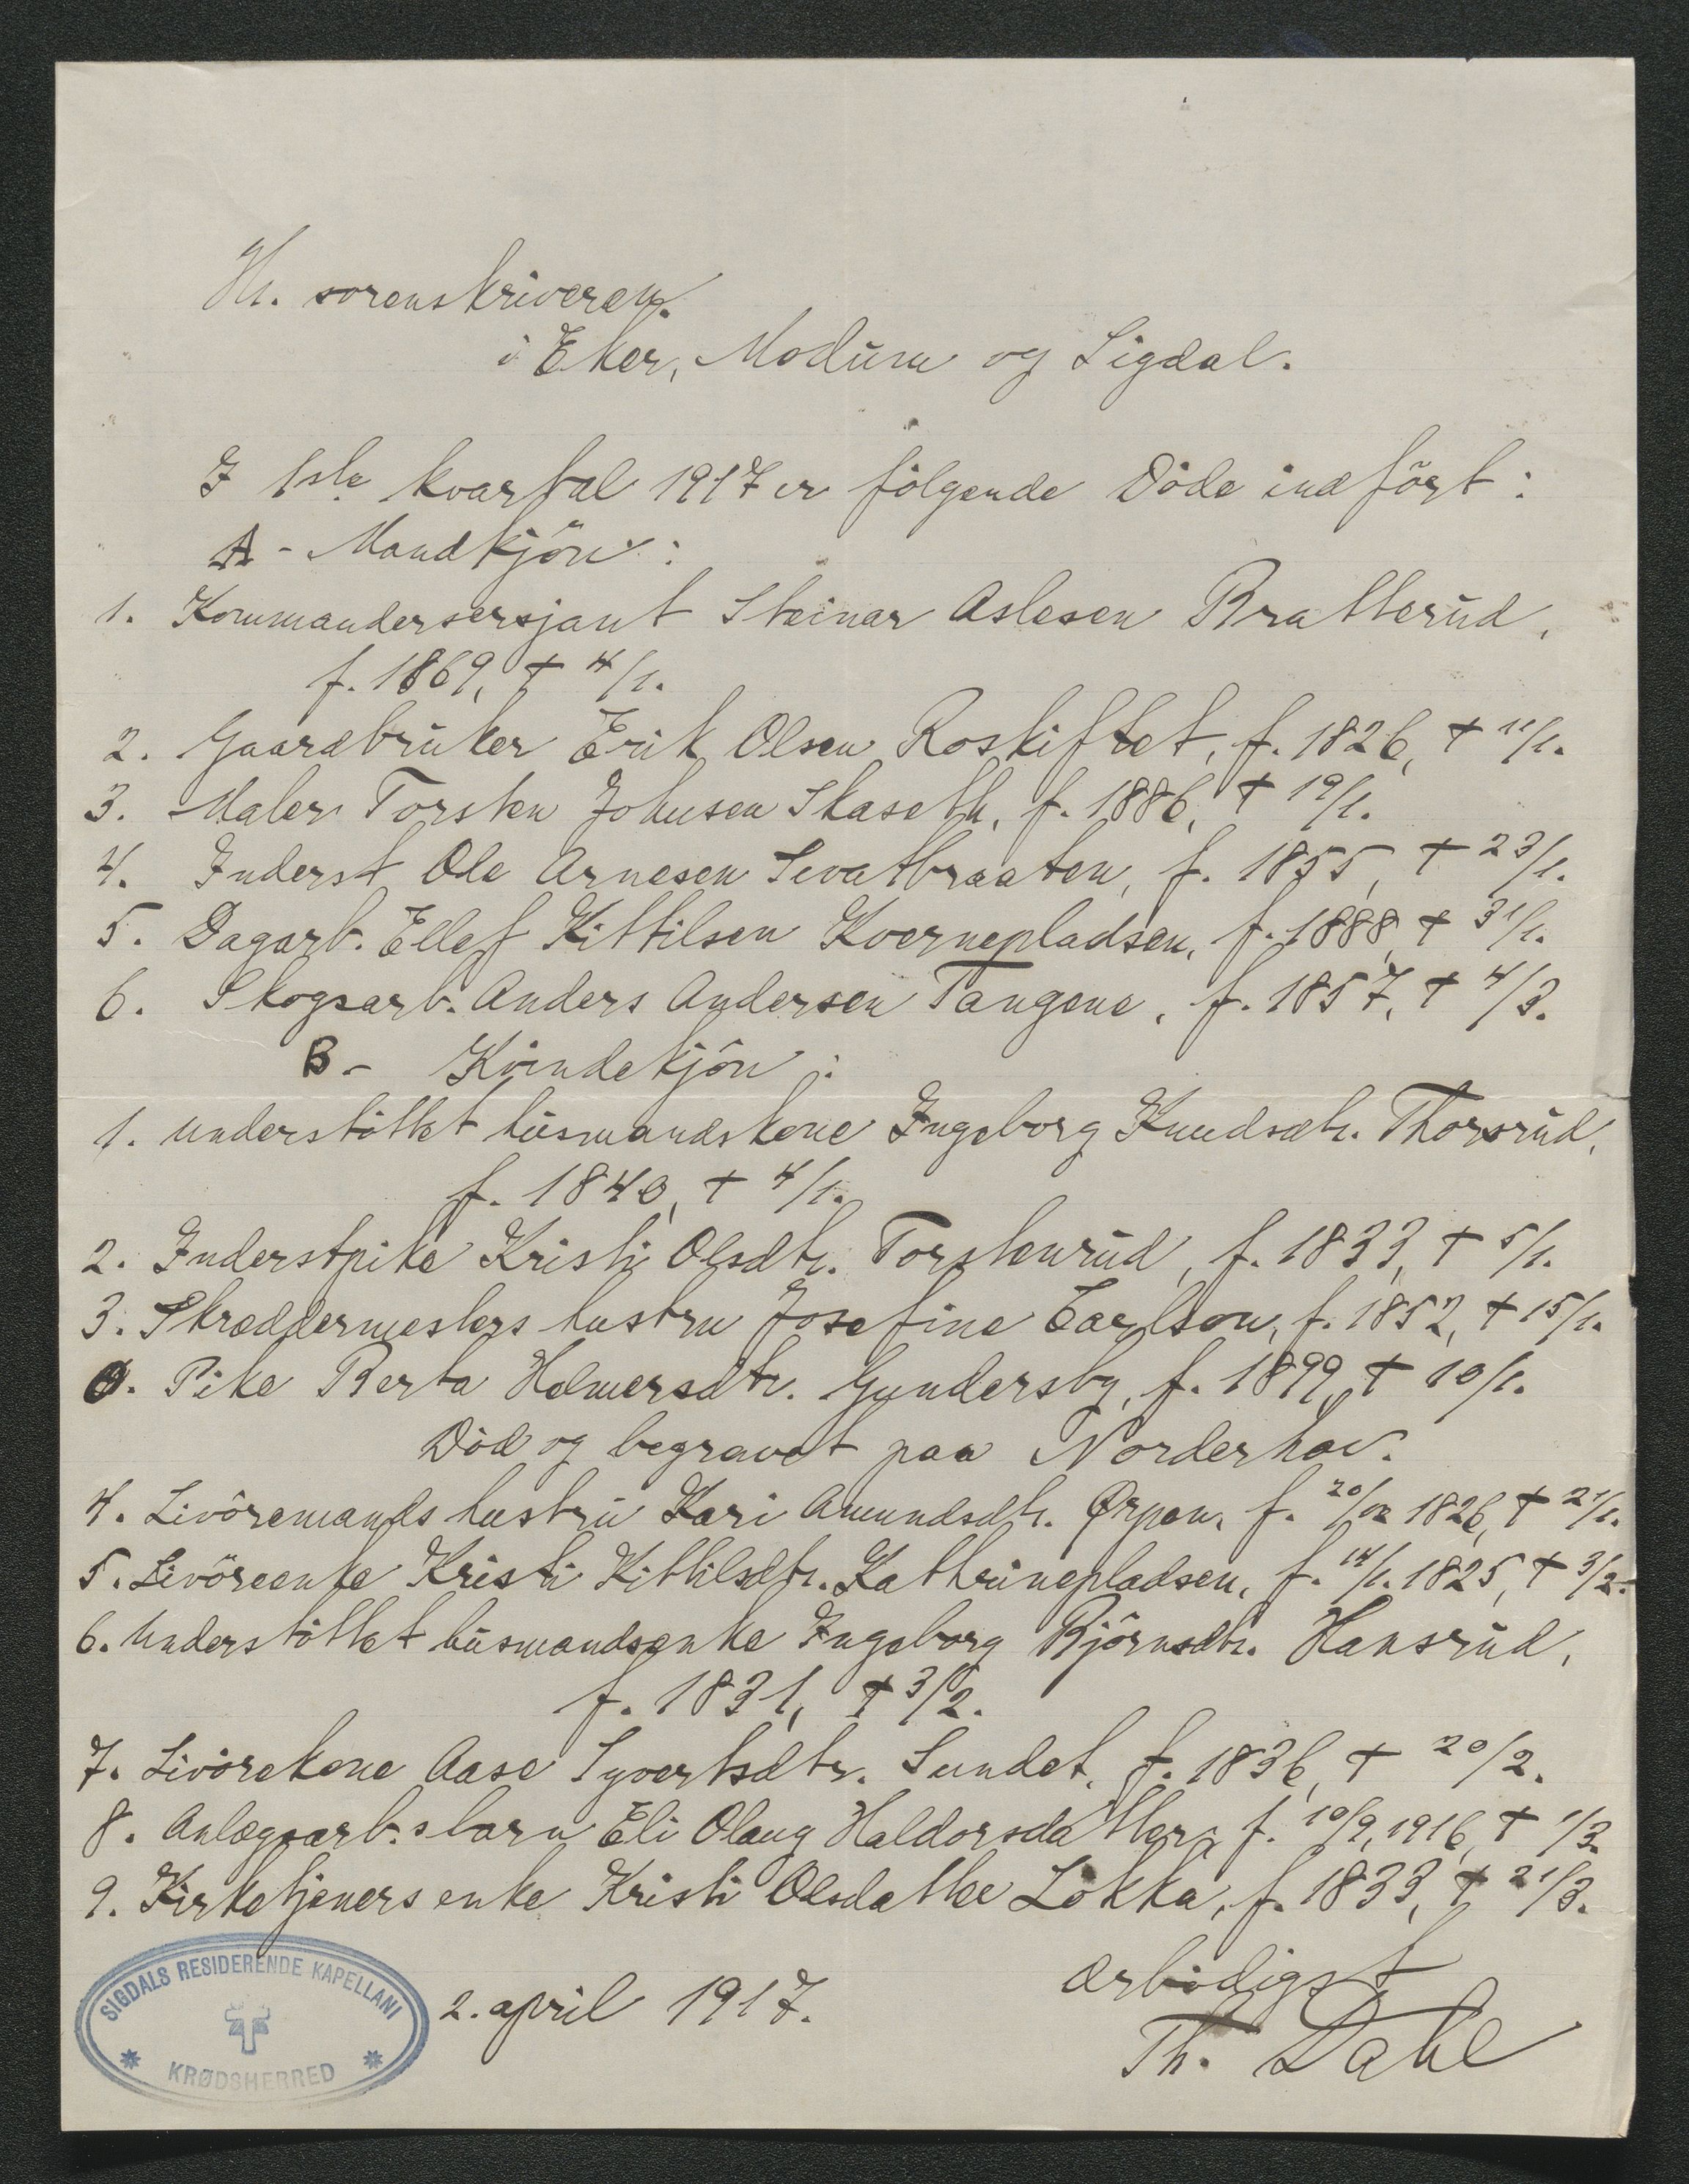 Hr. sorenskriveren
i Eker, Modum og Sigdal.
I 1ste kvartal 1917 er følgende Døde indført:
A - Mandkjøn:
1. Kommandersersjant Steinar Aslesen Bratterud,
f. 1869, † 4/1.
2. Gaardbruker Erik Olsen Roskiftet, f. 1826, † 11/1.
3. Maler Torsten Johnsen Skaseth, f. 1886, † 19/1.
4. Inderst Ole Arnesen Sevatbraaten, f. 1855, † 23/1.
5. Dagarb. Ellef Kittilsen Kvernepladsen, f. 1888 † 31/1.
6. Skogsarb. Anders Andersen Tangene, f. 1857, † 4/3.
B - Kvindekjøn:
1. Understøttet husmandskone Ingeborg Knudsdtr. Thorsrud,
f. 1840, † 4/1.
2. Inderstpike Kristi Olsdtr. Torstenrud, f. 1833, † 5/1.
3. Skreddermesters hustru Josefine Carlson, f. 1852, † 15/1.
0. Pike Berta Helmersdtr. Gundersby, f. 1899, † 10/1.
Død og begravet paa Norderhov.
4. Livøremands hustru Kari Amundsdtr. Ørpen, f. 20/12 1826, † 21/1.
5. Livøreenke Kristi Kittilsdtr. Kathrinepladsen, f. 14/1. 1825, † 3/2.
6. Understøttet husmandsenke Ingeborg Bjørnsdtr. Hansrud,
f. 1831, † 3/2.
7. Livørekone Aase Syvertsdtr. Sundet, f. 1836, † 20/2.
8. Anlægsarb.s barn Eli Olaug Haldorsdatter, f. 10/9, 1916, † 1/3.
9. Kirketjeners enke Kristi Olsdatter Løkka, f. 1833, † 21/3.
SIGDALS RESIDERENDE KAPELLANI
KRØDSHERRED
2. april 1917.
ærbødigst
Th. Dahl